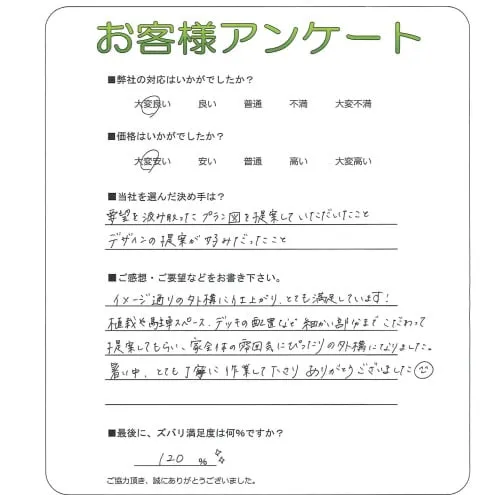 お客様アンケート
■弊社の対応はいかがでしたか？
大変良い 良い 普通 不満 大変不満
■価格はいかがでしたか？
大変安い 安い 普通 高い 大変高い
■当社を選んだ決め手は？
要望を汲み取ったプラン図を提案していただいたこと
デザインの提案が好みだったこと
■ご感想・ご要望などをお書き下さい。
イメージ通りの外構に仕上がり、とても満足しています！
植栽や駐車スペース、デッキの配置など細かい部分までこだわって
提案してもらい、家全体の雰囲気にぴったりの外構になりました。
暑い中、とても丁寧に作業して下さりありがとうございました
■最後に、ズバリ満足度は何%ですか？
120 %
ご協力頂き、誠にありがとうございました。